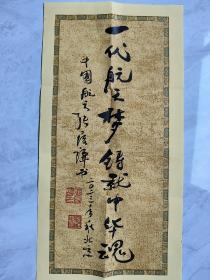 一代航天梦铸就中华魂
中国航天张履谦书
二〇一三年秋北京